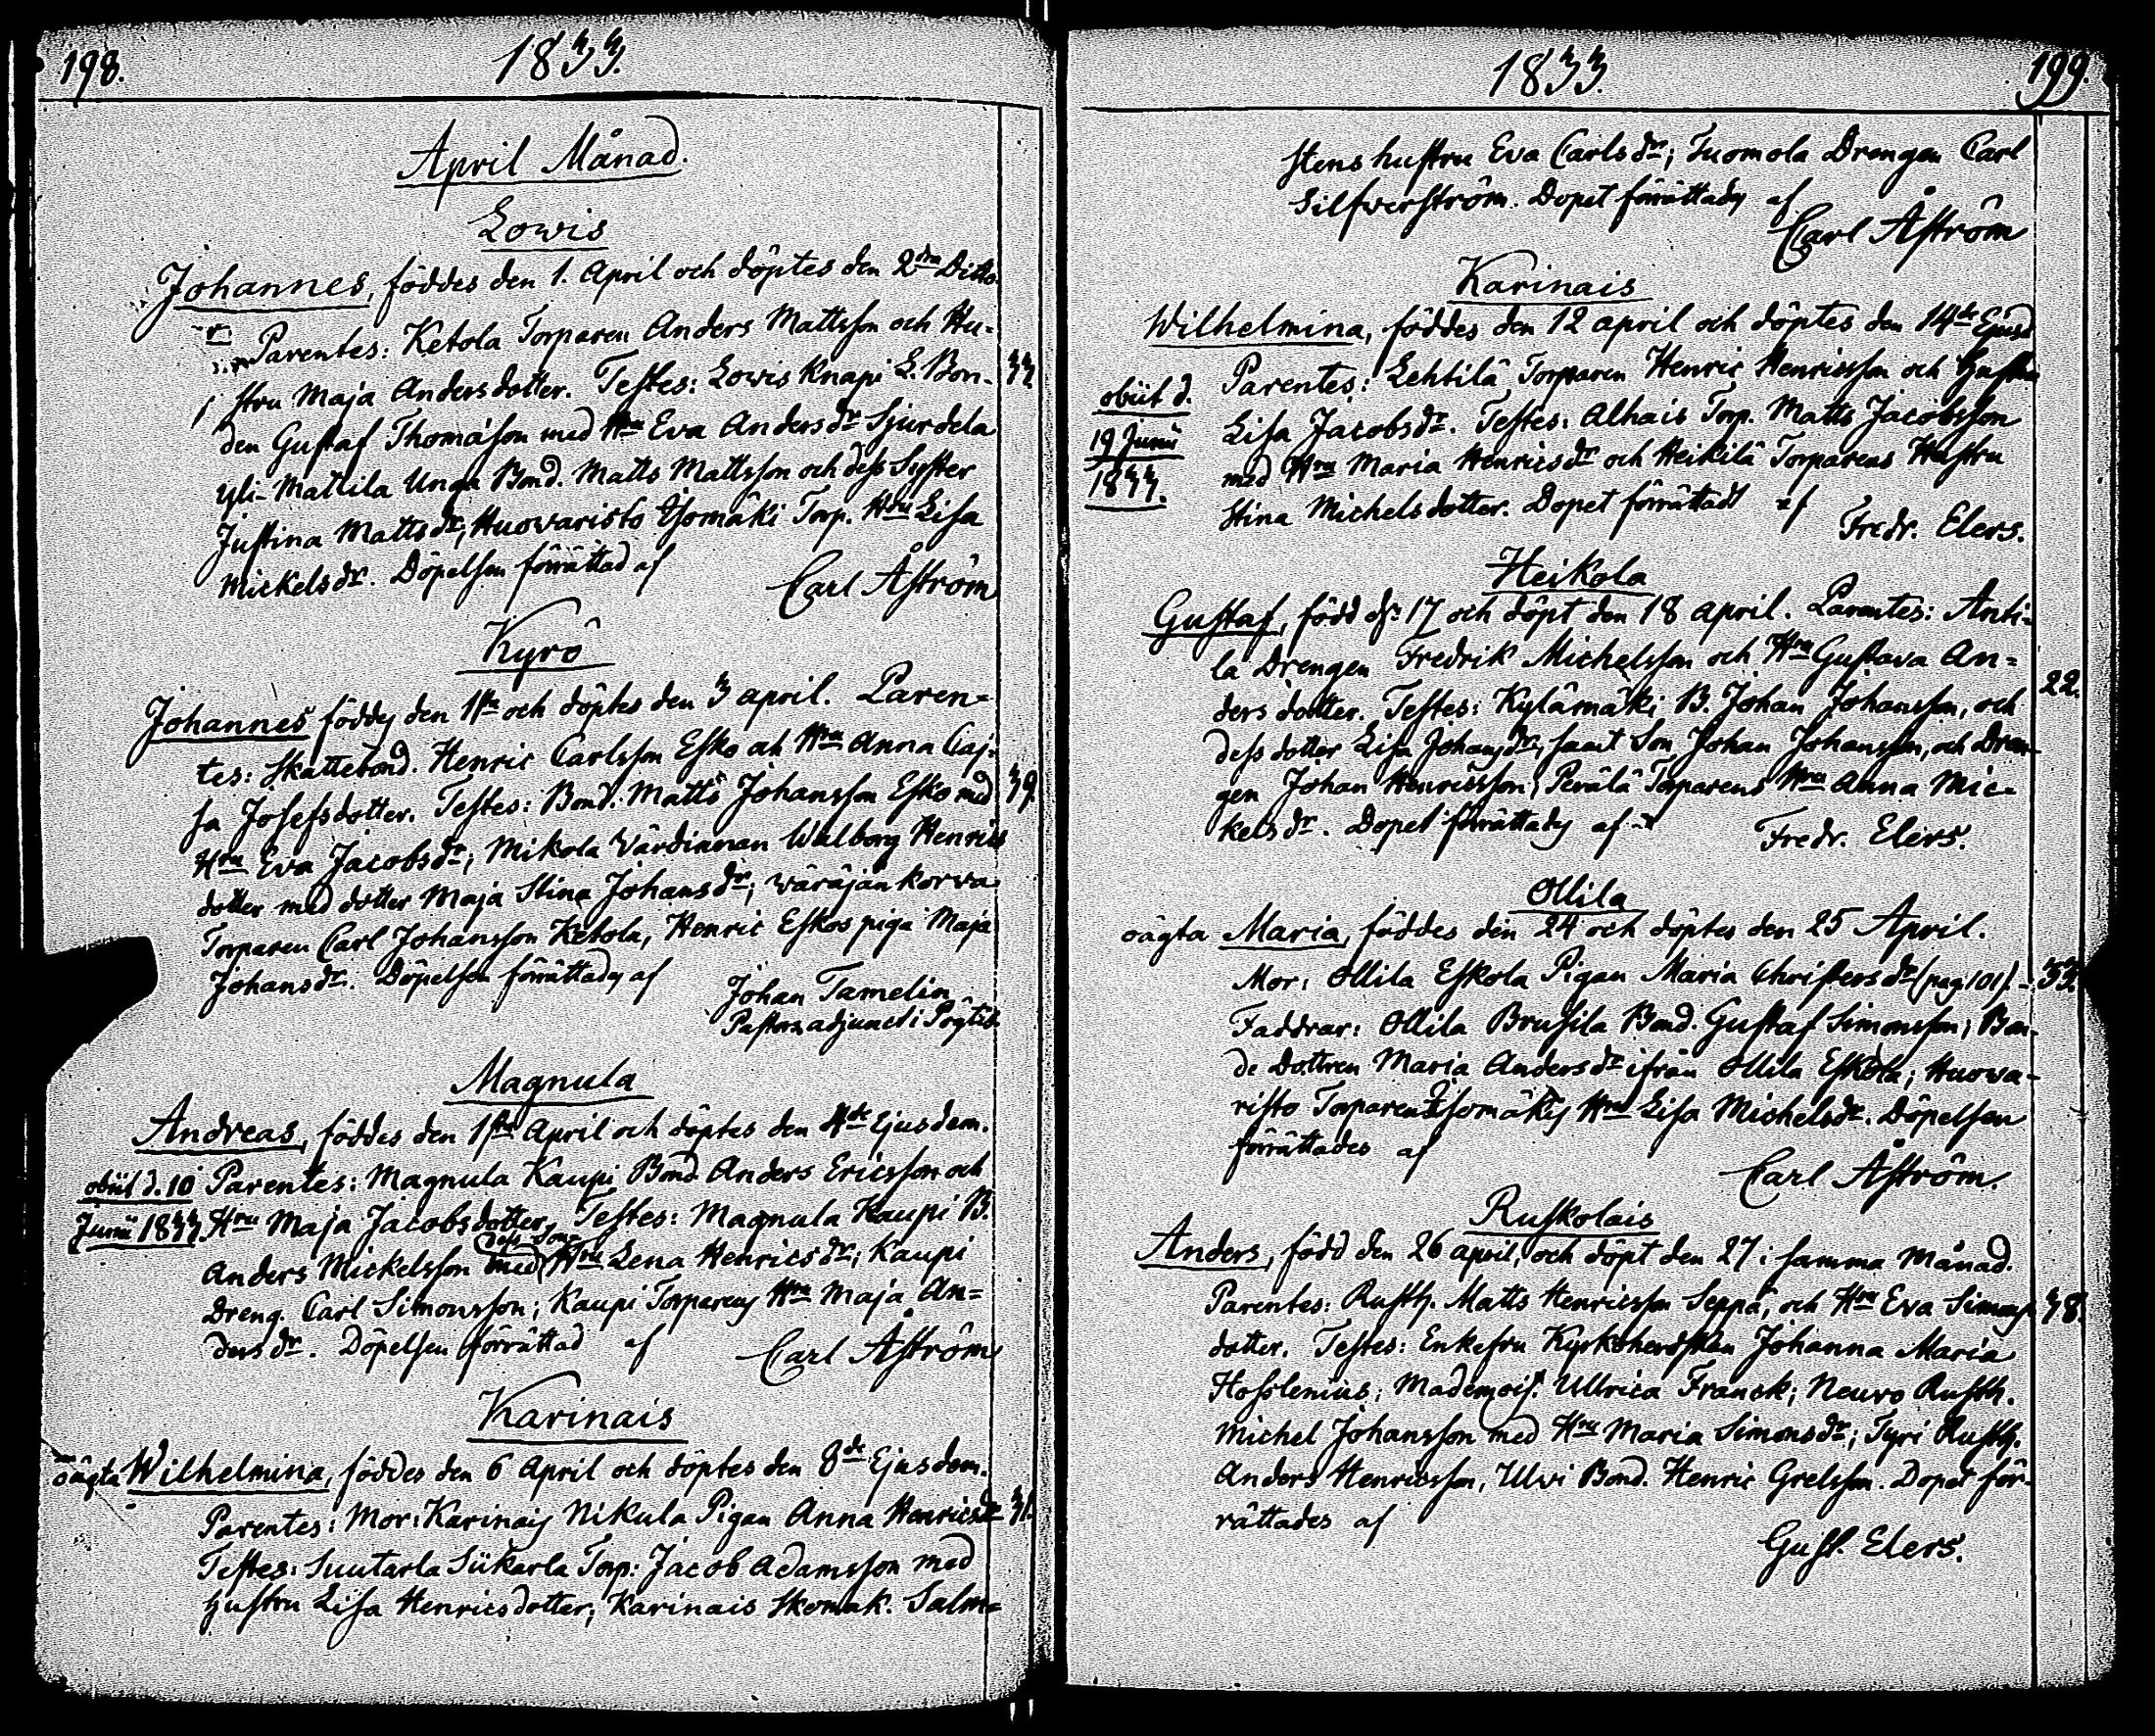 198.
1833.
April Månad.
Lowis
Johannes, föddes den 1. April och döptes den 2dra Ditto.
Parentes: Ketola Torparen Anders Mattsson och Hu-
stru Maja Andersdotter. Testes: Lowis Knapi L. Bon- 33.
den Gustaf Thomásson med Hru Eva Andersdr Sjurdela
Yli-Mattila Unga Bond. Matts Mattsson och dess Syster
Justina Mattsdr, Huovaristo Isomäki Torp. Hru Lisa
Mickelsdr. Döpelsen förrättad af
Carl Åström
Kyrö
Johannes föddes den 1sta och döptes den 3 april. Paren-
tes: Skattebond. Henric Carlsson Esko och Hru Anna Caj-
sa Josefsdotter. Testes: Bond. Matts Johansson Esko med 39.
Hru Eva Jacobsdr; Mikola Värdinnan Walborg Henrics
dotter med dotter Maja Stina Johansdr; Wäräjänkorva
Torparen Carl Johansson Ketola, Henric Eskos piga Maja
Johansdr. Döpelsen förrättades af
Johan Tamelin
Pastors adjunct i Pöytis.
Magnula
Andreas, föddes den 1sta April och döptes den 4de Ejusdem.
obiit d. 10 Parentes: Magnula Kaupi Bond Anders Ericsson och
Junii 1833. Hru Maja Jacobsdotter, Testes: Magnula Kaupi B.
dess Son
Anders Mickelsson med Hru Lena Henricsdr; Kaupi
Dreng. Carl Simonsson; Kaupi Torparens Hru Maja An=
dersdr. Döpelsen förrättad af
Carl Åström
Karinais
oägta Wilhelmina, föddes den 6 April och döptes den 8de Ejusdem.
Parentes: Mor: Karinais Nikula Pigan Anna Henricsdr 31.
Testes: Suutarla Siikarla Torp: Jacob Adamsson med
Hustru Lisa Henricsdotter; Karinais Skomak. Salm=
1833.
199.
stens hustru Eva Carlsdr; Tuomola Drengen Carl
Silfwerström. Dopet förrättades af
Carl Åström
Karinais
Wilhelmina, föddes den 12 april och döptes den 14de Ejusd
Parentes: Lehtilä Torparen Henric Henricsson och Hustru
obiit d.
19 Junii
1833.
Lisa Jacobsdr. Testes: Alhais Torp. Matts Jacobsson
med Hru Maria Henricsdr och Heikilä Torparens Hustru
Stina Michelsdotter. Dopet förrättadt af
Fredr. Elers.
Heikola
Gustaf, född d. 17 och döpt den 18 april. Parentes: Anti-
la Drengen Fredrik Michelsson och Hru Gustava An=
ders dotter. Testes: Kylämäki B. Johan Johansson, och 22.
dess dotter Lisa Johansdr, samt Son Johan Johansson, och Dren-
gen Johan Henricsson; Perälä Torparens Hru Anna Mic=
kelsdr. Dopet förrättades af
Fredr. Elers.
Ollila
oägta Maria, föddes den 24 och döptes den 25 April.
Mor: Ollila Eskola Pigan Maria Christersdr (pag 101). - 33.
Faddrar: Ollila Brusila Bond. Gustaf Simonsson; Bon-
de Dottren Maria Andersdr ifrån Ollila Eskola; Huova-
risto Torparen Isomäkis Hru Lisa Michelsdr. Döpelsen
förrättades af
Carl Åström.
Ruskolais
Anders, född den 26 april, och döpt den 27 i samma Månad.
Parentes: Rusth. Matts Henricsson Seppä, och Hru Eva Simons 38.
dotter. Testes: Enkefru Kyrkoherdskan Johanna Maria
Hosslenius; Mademois. Ullrica Franck; Neuvo Rusth.
Michel Johansson med Hru Maria Simonsdr; Tyri Rusth.
Anders Henricsson, Ulvi Bond. Henric Grelsson. Dopet för-
rättades af
Gust. Elers.